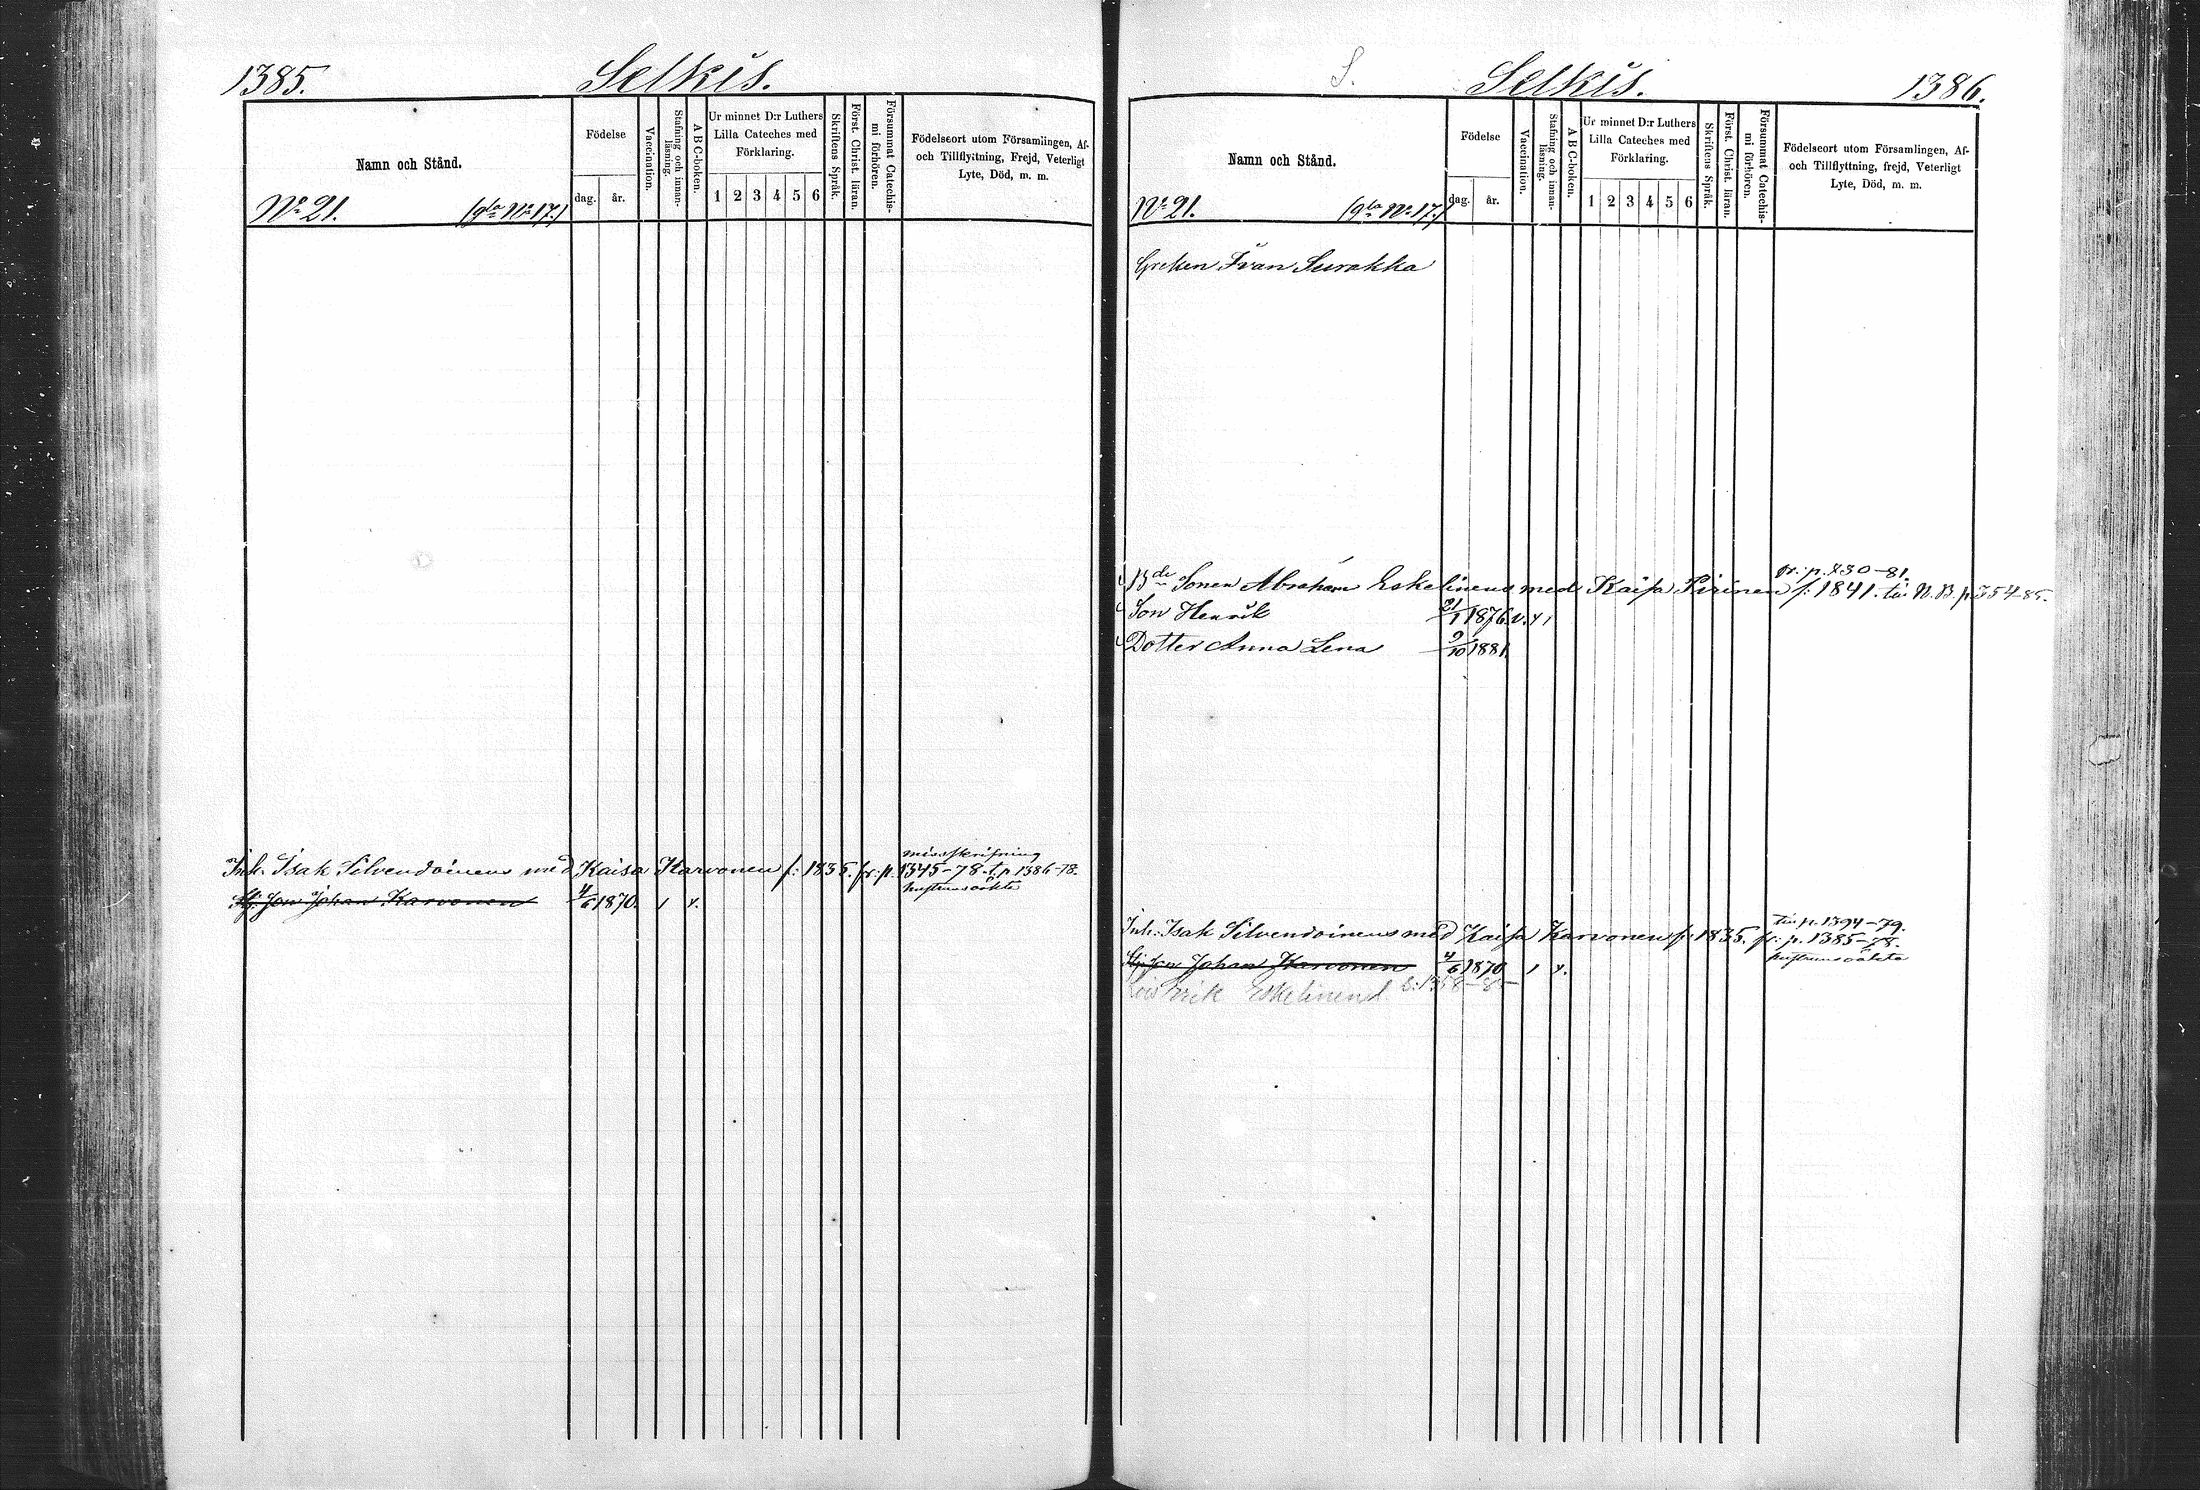 1385.
Selkis.
Namn och Stånd.
Födelse
dag.
år.
Vaccination.
Stafning och innan-
läsning.
A B C-boken.
Ur minnet D:r Luthers
Lilla Cateches med
Förklaring.
1 2 3 4 5 6
Skriftens Språk.
Först. Christ. läran.
Försummat Catechis-
mi förhören.
Födelseort utom Församlingen, Af-
och Tillflyttning, Frejd, Veterligt
Lyte, Död, m. m.
No 21. (gla No 17.)
missskrifning
Inh. Isak Silvendoinens med Kaisa Karvonen f: 1835. fr: p. 1345-78. t. p 1386-78.
hustruns oäkta
Son Johan Karvonen 4/6 1870. 1 x.
S.
Selkis.
1386.
Namn och Stånd.
Födelse
dag.
år.
Vaccination.
Stafning och innan-
läsning.
A B C-boken.
Ur minnet D:r Luthers
Lilla Cateches med
Förklaring.
1 2 3 4 5 6
Skriftens Språk.
Först. Christ. läran.
Försummat Catechis-
mi förhören.
Födelseort utom Församlingen, Af-
och Tillflyttning, frejd, Veterligt
Lyte, Död, m. m.
No 21. (gla No 17.)
Greken Ivan Surakka
fr: p. 830-81.
Bde Sonen Abraham Eskelinens med Kaisa Pirinen f: 1841. till N. B. p. 354-85.
Son Henrik 21/1 1876. v. x 1
Dotter Anna Lena 9/10 1881.
till p. 1394-79.
Inh: Isak Silvendoinens med Kaisa Karvonen f: 1835. fr: p. 1385-78.
hustruns oäkta
Son Johan Karvonen 4/6 1870 1 x.
Erik Eskelinen